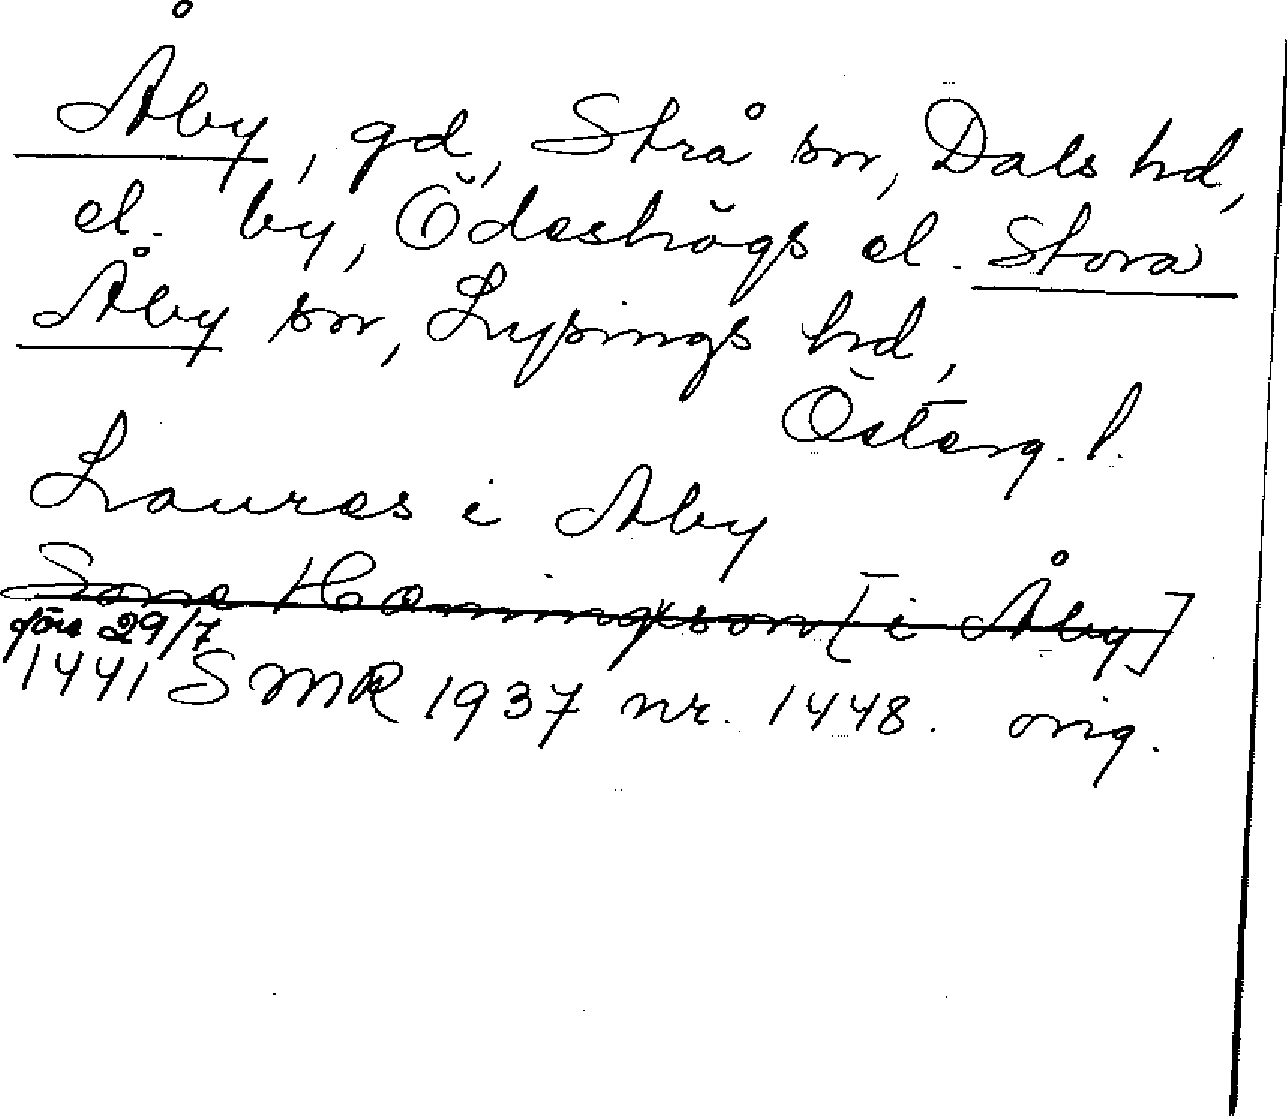 Åby, gd, Strå sn, Dals hd,
el. by, Ödeshögs el. Stora
Åby sn, Lysings hd,
Österg. l.
Laures i Aby
Sone Hæningxson [i Åby]
före 29/7
1441 SMR 1937 nr. 1448. orig.